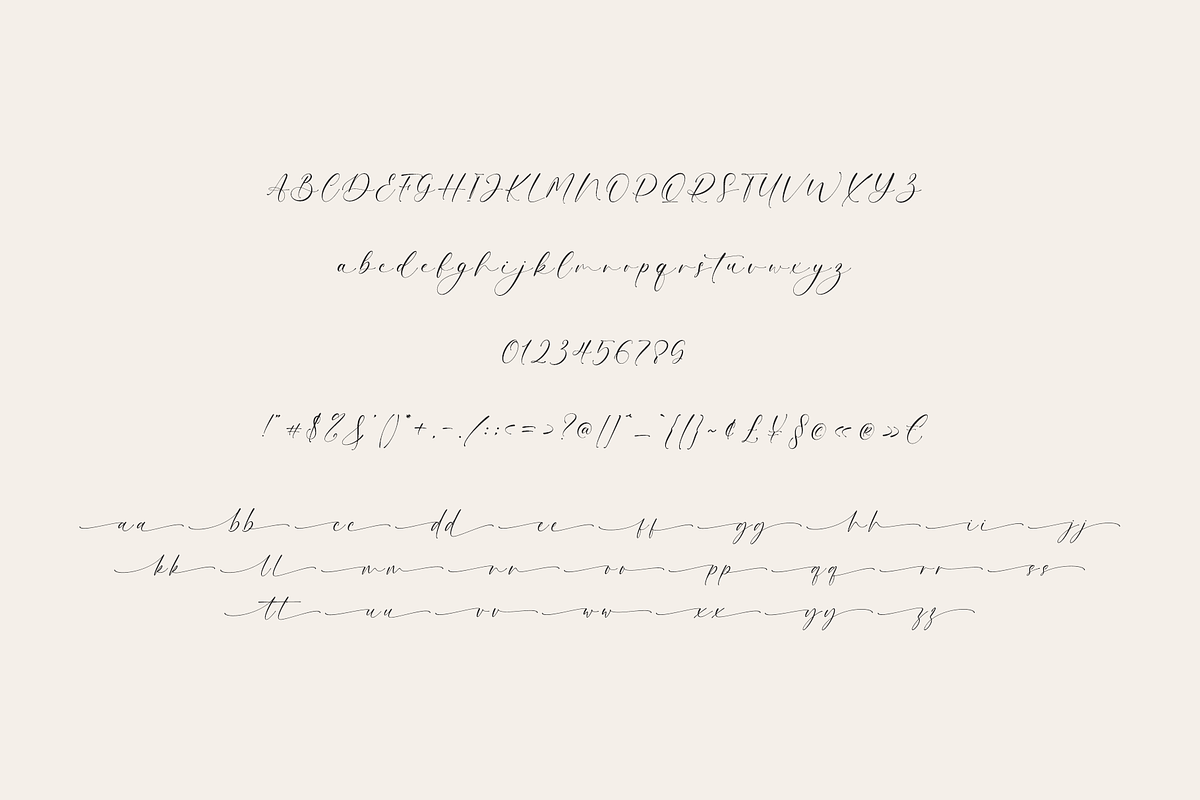 ABCDEFGHIJKLMNOPQRSTUVWXYZ
abcdefghijklmnopqrstuvwxyz
0123456789
!"#$%&'()*+,-./:;<=>?@[\]^_`{|}~¢£¥§©«®»€
aa bb cc dd ee ff gg hh ii jj
kk ll mm nn oo pp qq rr ss
tt uu vv ww xx yy zz